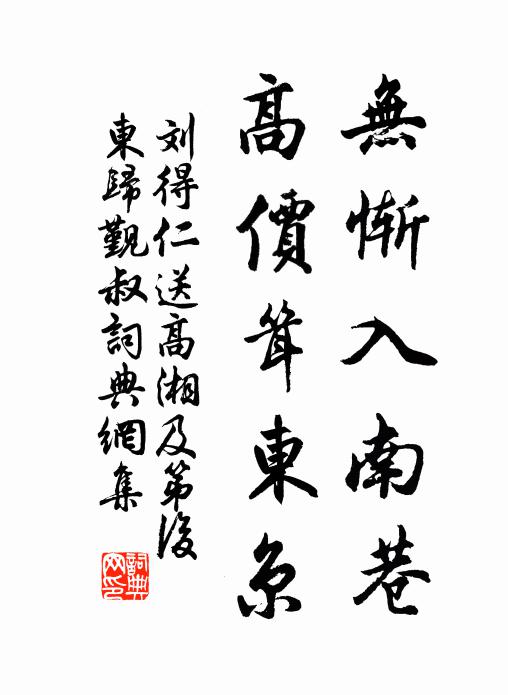 無慚入南巷
高價聳東京
刘得仁送高湘及第後
東歸覲叔詞典網集
詞典
网印